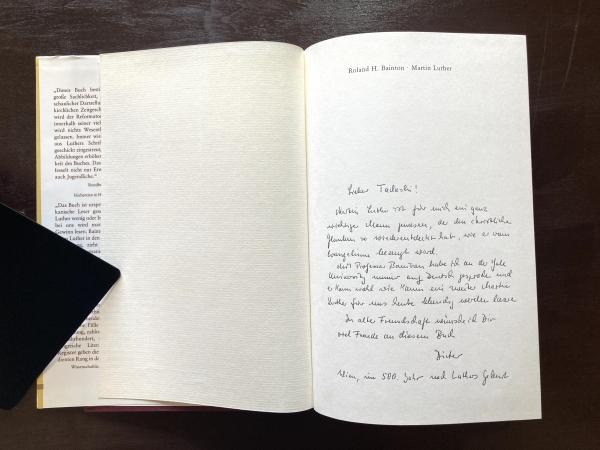 „Dieses Buch
große Sachlichkeit,
schaulicher Darstellu
kirchlichen Zeitgesch
wird der Reformator
innerhalb seiner viel
wird nichts Wesentl
gelassen. Immer wie
aus Luthers Schrif
geschickt eingestreut,
Abbildungen erhöhen
keit des Buches. Das
fesselt nicht nur Erw
auch Jugendliche.“
„Das Buch ist urspr
kanische Leser gesc
Luthers wenig oder
bei uns wird man
Gewinn lesen.
Luther in den
zieht
Fälle
ng, zahlr
hrhundert,
ngreiche Liter
Register geben die
dienten Rang in de
Wissenschaftlic
Roland H. Bainton · Martin Luther
Lieber Tadashi!
Martin Luther ist für mich ein ganz
wichtiger Mann gewesen, der den christlichen
Glauben so wiederentdeckt hat, wie er vom
Evangelium bezeugt wird.
Mit Professor Bainton habe ich an der Yale
University immer auf Deutsch gesprochen und
er kann wohl wie kaum ein zweiter Martin
Luther für uns heute lebendig werden lassen
In alter Freundschaft wünsche ich Dir
viel Freude an diesem Buch
Dieter
Wien, im 500. Jahr nach Luthers Geburt